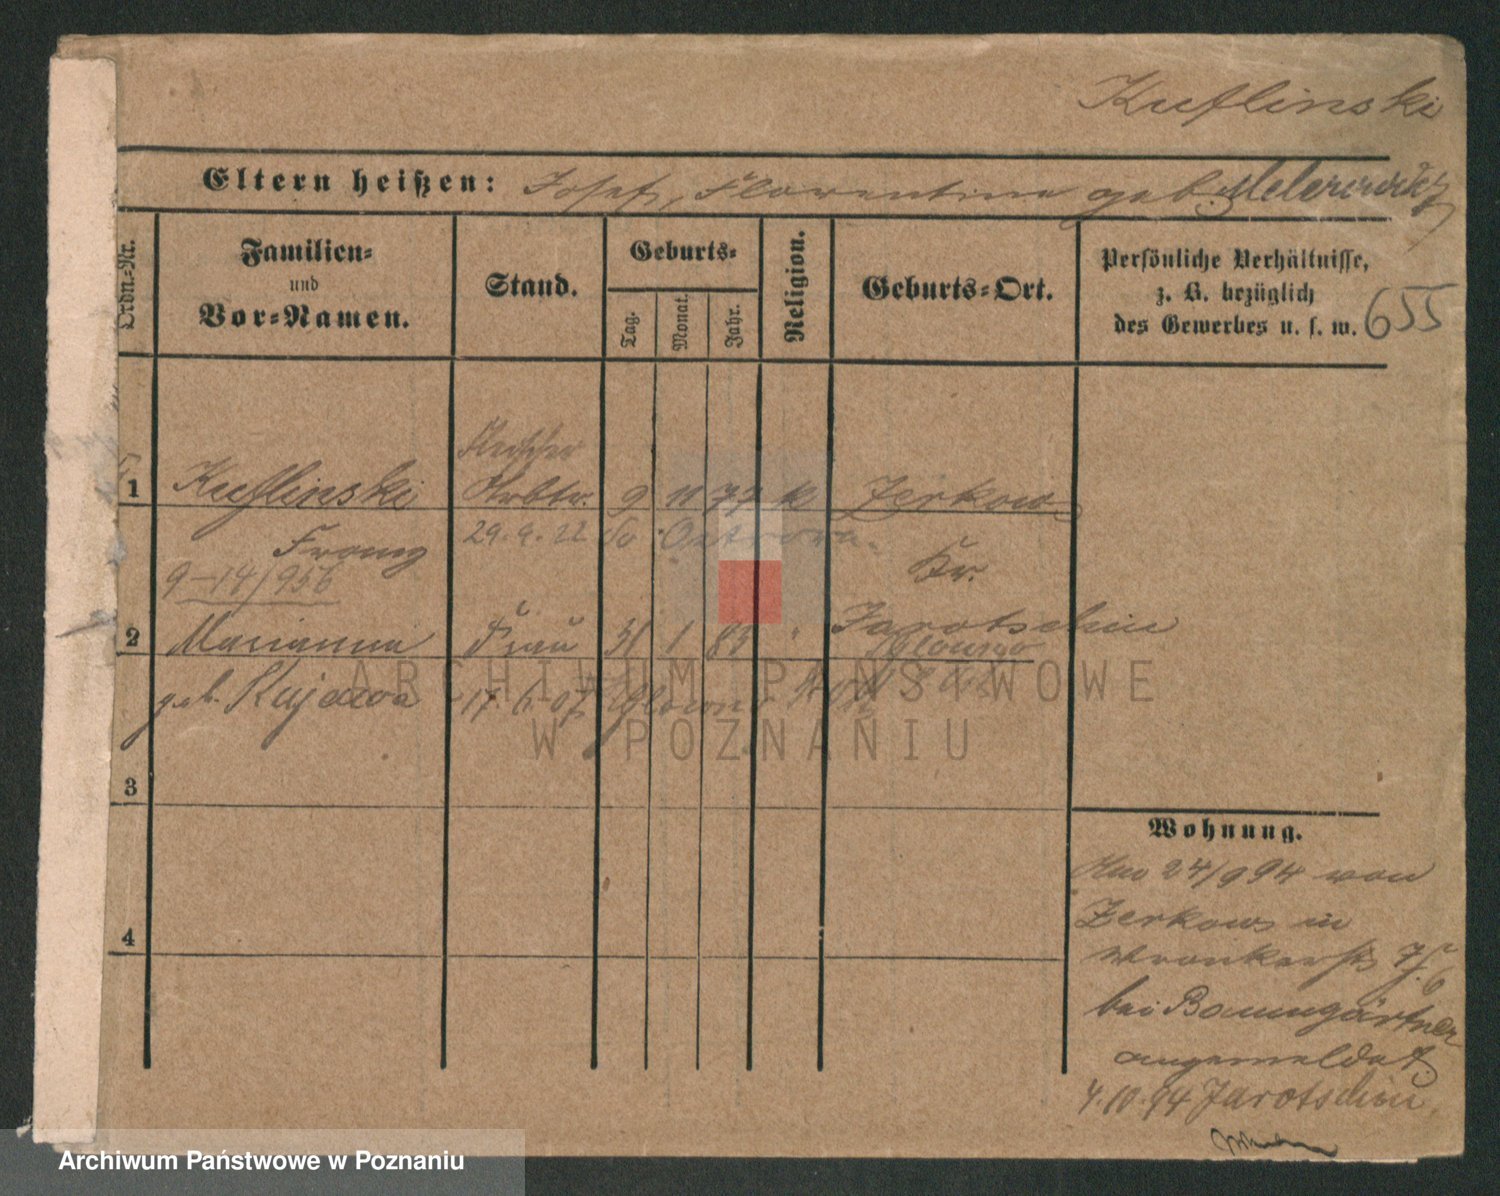 Kuflinski
Eltern heißen: Josef, Florentine geb.
Ordn.-Nr.
Familien-
und
Vor-Namen.
Stand.
Geburts-
Tag.
Monat.
Jahr.
Religion.
Geburts-Ort.
Persönliche Verhältnisse,
z. B. bezüglich
des Gewerbes u. s. w.
655
1 Kuflinski Arbtr. 9 11 77 k Zerkow
Franz 29.9.22 Ostrowo
Kr.
9-14/956
Jarotschin
2 Marianna Frau 31 1 83 " Glowno
geb. Kujawa 17.6.07 Glowno
3
4
Wohnung.
24/9 94 von
Zerkow in
Wronkerstr
bei Baumgärtner
angemeldet
4.10.94 Jarotschin
ARCHIWUM PAŃSTWOWE
W POZNANIU
Archiwum Państwowe w Poznaniu